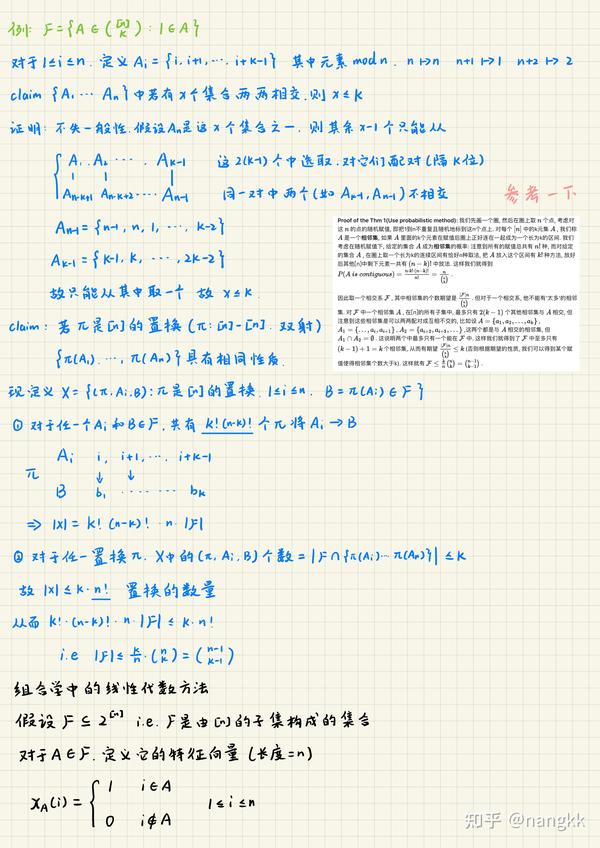 例: F={A∈([n] k): 1∈A}
对于1≤i≤n. 定义Ai={i,i+1,…,i+k-1} 其中元素mod n. n↦n n+1↦1 n+2↦2
claim {A1…An}中若有x个集合两两相交,则x≤k
证明: 不失一般性,假设An是这x个集合之一. 则其余x-1个只能从
{ A1 A2 … Ak-1 这2(k-1)个中选取.对它们配对(隔k位)
An-k+1 An-k+2 … An-1 同一对中两个(如Ak-1,An-1)不相交
参考一下
An-1={n-1,n,1,…,k-2}
Ak-1={k-1,k,…,2k-2}
故只能从其中取一个 故x≤k.
Proof of the Thm 1(Use probabilistic method): 我们先画一个圈, 然后在圈上取 n 个点, 考虑对
这 n 的点的随机赋值, 即把1到n不重复且随机地标到这n个点上. 对每个 [n] 中的k元集 A, 我们称
A 是一个相邻集, 如果 A 里面的k个元素在赋值后圈上正好连在一起成为一个长为k的区间. 我们
考虑在随机赋值下, 给定的集合 A 成为相邻集的概率: 注意到所有的赋值总共有 n! 种, 而对给定
的集合 A, 在圈上取一个长为k的连续区间有恰好n种取法, 把 A 放入这个区间有 k! 种方法, 放好
后其他[n]中剩下元素一共有 (n-k)! 中放法. 这样我们就得到
P(A is contiguous) = n·k!(n-k)!/n! = n/(n k).
因此取一个相交系 F, 其中相邻集的个数期望是 |F|n/(n k). 但对于一个相交系, 他不能有'太多'的相邻
集. 对 F 中一个相邻集 A, 在[n]的所有子集中, 最多只有 2(k-1) 个其他相邻集与 A 相交, 但
注意到这些相邻集是可以两两配对成互相不交的, 比如设 A={a1,a2,…,ak},
A1={…,ai,ai+1}, A2={ai+2,ai+3,…},这两个都是与 A 相交的相邻集, 但
A1∩A2=∅. 这说明两个中最多只有一个能在 F 中. 这样我们就得到了 F 中至多只有
(k-1)+1=k 个相邻集, 从而有期望 |F|n/(n k) ≤ k (否则根据期望的性质, 我们可以得到某个赋
值使得相邻集个数大于k). 这样就有 F ≤ k/n (n k) = (n-1 k-1).
claim: 若π是[n]的置换 (π:[n]→[n].双射)
{π(A1),…,π(An)}具有相同性质.
现定义X={(π,Ai,B): π是[n]的置换. 1≤i≤n. B=π(Ai)∈F}
① 对于任一个Ai和B∈F.共有k!(n-k)!个π将Ai→B
Ai i, i+1,…, i+k-1
π ↓ ↓
B b1 …… bk
⇒ |X|=k!(n-k)!·n·|F|
② 对于任一置换π. X中的(π,Ai,B)个数=|F∩{π(A1)…π(An)}|≤k
故|X|≤k·n! 置换的数量
从而 k!·(n-k)!·n·|F|≤k·n!
i.e |F|≤k/n·(n k)=(n-1 k-1)
组合学中的线性代数方法
假设F⊆2^[n] i.e. F是由[n]的子集构成的集合
对于A∈F.定义它的特征向量(长度=n)
χA(i)={ 1 i∈A 1≤i≤n
0 i∉A
知乎 @nangkk